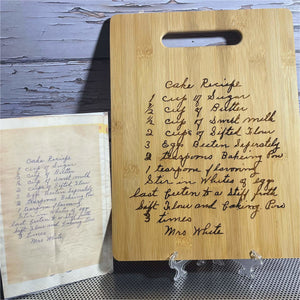 Cake Recipe
1 cup of Sugar
½ cup of Butter
½ cup of Sweet milk
2 cups of Sifted Flour
3 Eggs Beeten Seperately
2 teaspoons Baking Pow
1 teaspoon flavoring
Stir in Whites of eggs
last beeten to a stiff froth
Sift Flour and Baking Pro
3 times
Mrs White
Cake Recipe
1 cup of Sugar
½ cup of Butter
½ cup of Sweet milk
2 cups of Sifted Flour
3 Eggs Beeten Seperately
2 teaspoons Baking Pow
1 teaspoon flavoring
Stir in Whites of eggs
last beeten to a stiff froth
Sift Flour and Baking Pro
3 times
Mrs White